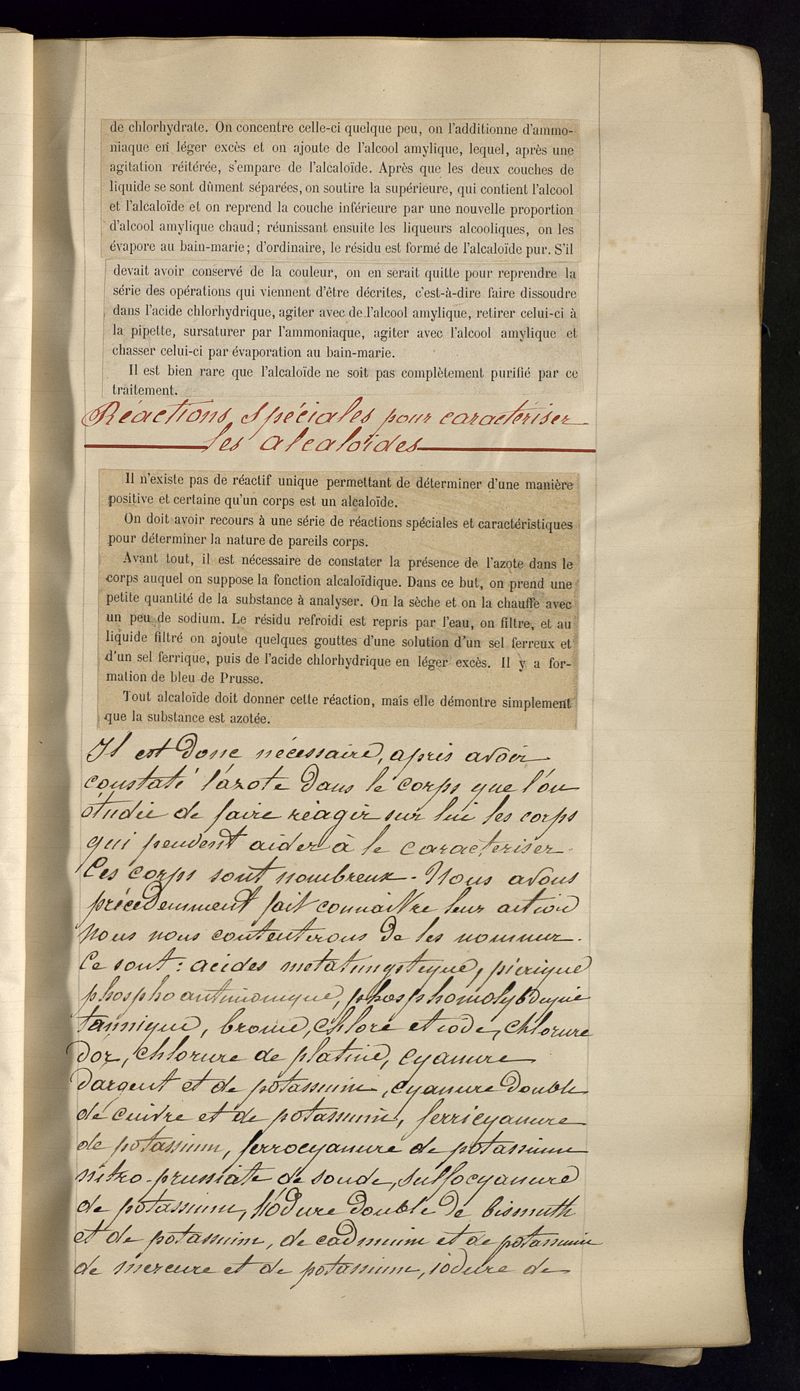 de chlorhydrate. On concentre celle-ci quelque peu, on l'additionne d'ammo-
niaque en léger excès et on ajoute de l'alcool amylique, lequel, après une
agitation réitérée, s'empare de l'alcaloïde. Après que les deux couches de
liquide se sont dûment séparées, on soutire la supérieure, qui contient l'alcool
et l'alcaloïde et on reprend la couche inférieure par une nouvelle proportion
d'alcool amylique chaud; réunissant ensuite les liqueurs alcooliques, on les
évapore au bain-marie; d'ordinaire, le résidu est formé de l'alcaloïde pur. S'il
devait avoir conservé de la couleur, on en serait quitte pour reprendre la
série des opérations qui viennent d'être décrites, c'est-à-dire faire dissoudre
dans l'acide chlorhydrique, agiter avec de l'alcool amylique, retirer celui-ci à
la pipette, sursaturer par l'ammoniaque, agiter avec l'alcool amylique et
chasser celui-ci par évaporation au bain-marie.
Il est bien rare que l'alcaloïde ne soit pas complètement purifié par ce
traitement.
Réactions spéciales pour caractériser
les alcaloïdes
Il n'existe pas de réactif unique permettant de déterminer d'une manière
positive et certaine qu'un corps est un alcaloïde.
On doit avoir recours à une série de réactions spéciales et caractéristiques
pour déterminer la nature de pareils corps.
Avant tout, il est nécessaire de constater la présence de l'azote dans le
corps auquel on suppose la fonction alcaloïdique. Dans ce but, on prend une
petite quantité de la substance à analyser. On la sèche et on la chauffe avec
un peu de sodium. Le résidu refroidi est repris par l'eau, on filtre, et au
liquide filtré on ajoute quelques gouttes d'une solution d'un sel ferreux et
d'un sel ferrique, puis de l'acide chlorhydrique en léger excès. Il y a for-
mation de bleu de Prusse.
Tout alcaloïde doit donner cette réaction, mais elle démontre simplement
que la substance est azotée.
Il est donc nécessaire, après avoir
constaté l'azote dans le corps que l'on
étudie de faire réagir sur lui les corps
qui peuvent aider à le caracteriser.
Ces corps sont nombreux. Nous avons
précedemment fait connaitre leur action
nous nous contenterons de les nommer.
Ce sont: acides métatungstique, picrique
phosphoantimonique, phosphomolybdique
tannique, brome, chlore et iode, chlorure
d'or, chlorure de platine, cyanure
d'argent et de potassium, cyanure double
de cuivre et de potassium, ferricyanure
de potassium, ferrocyanure de potassium
nitro-prussiate de soude, sulfocyanure
de potassium, Iodure double de bismuth
et de potassium, de cadmium et de potassium
de mercure et de potassium, iodure de